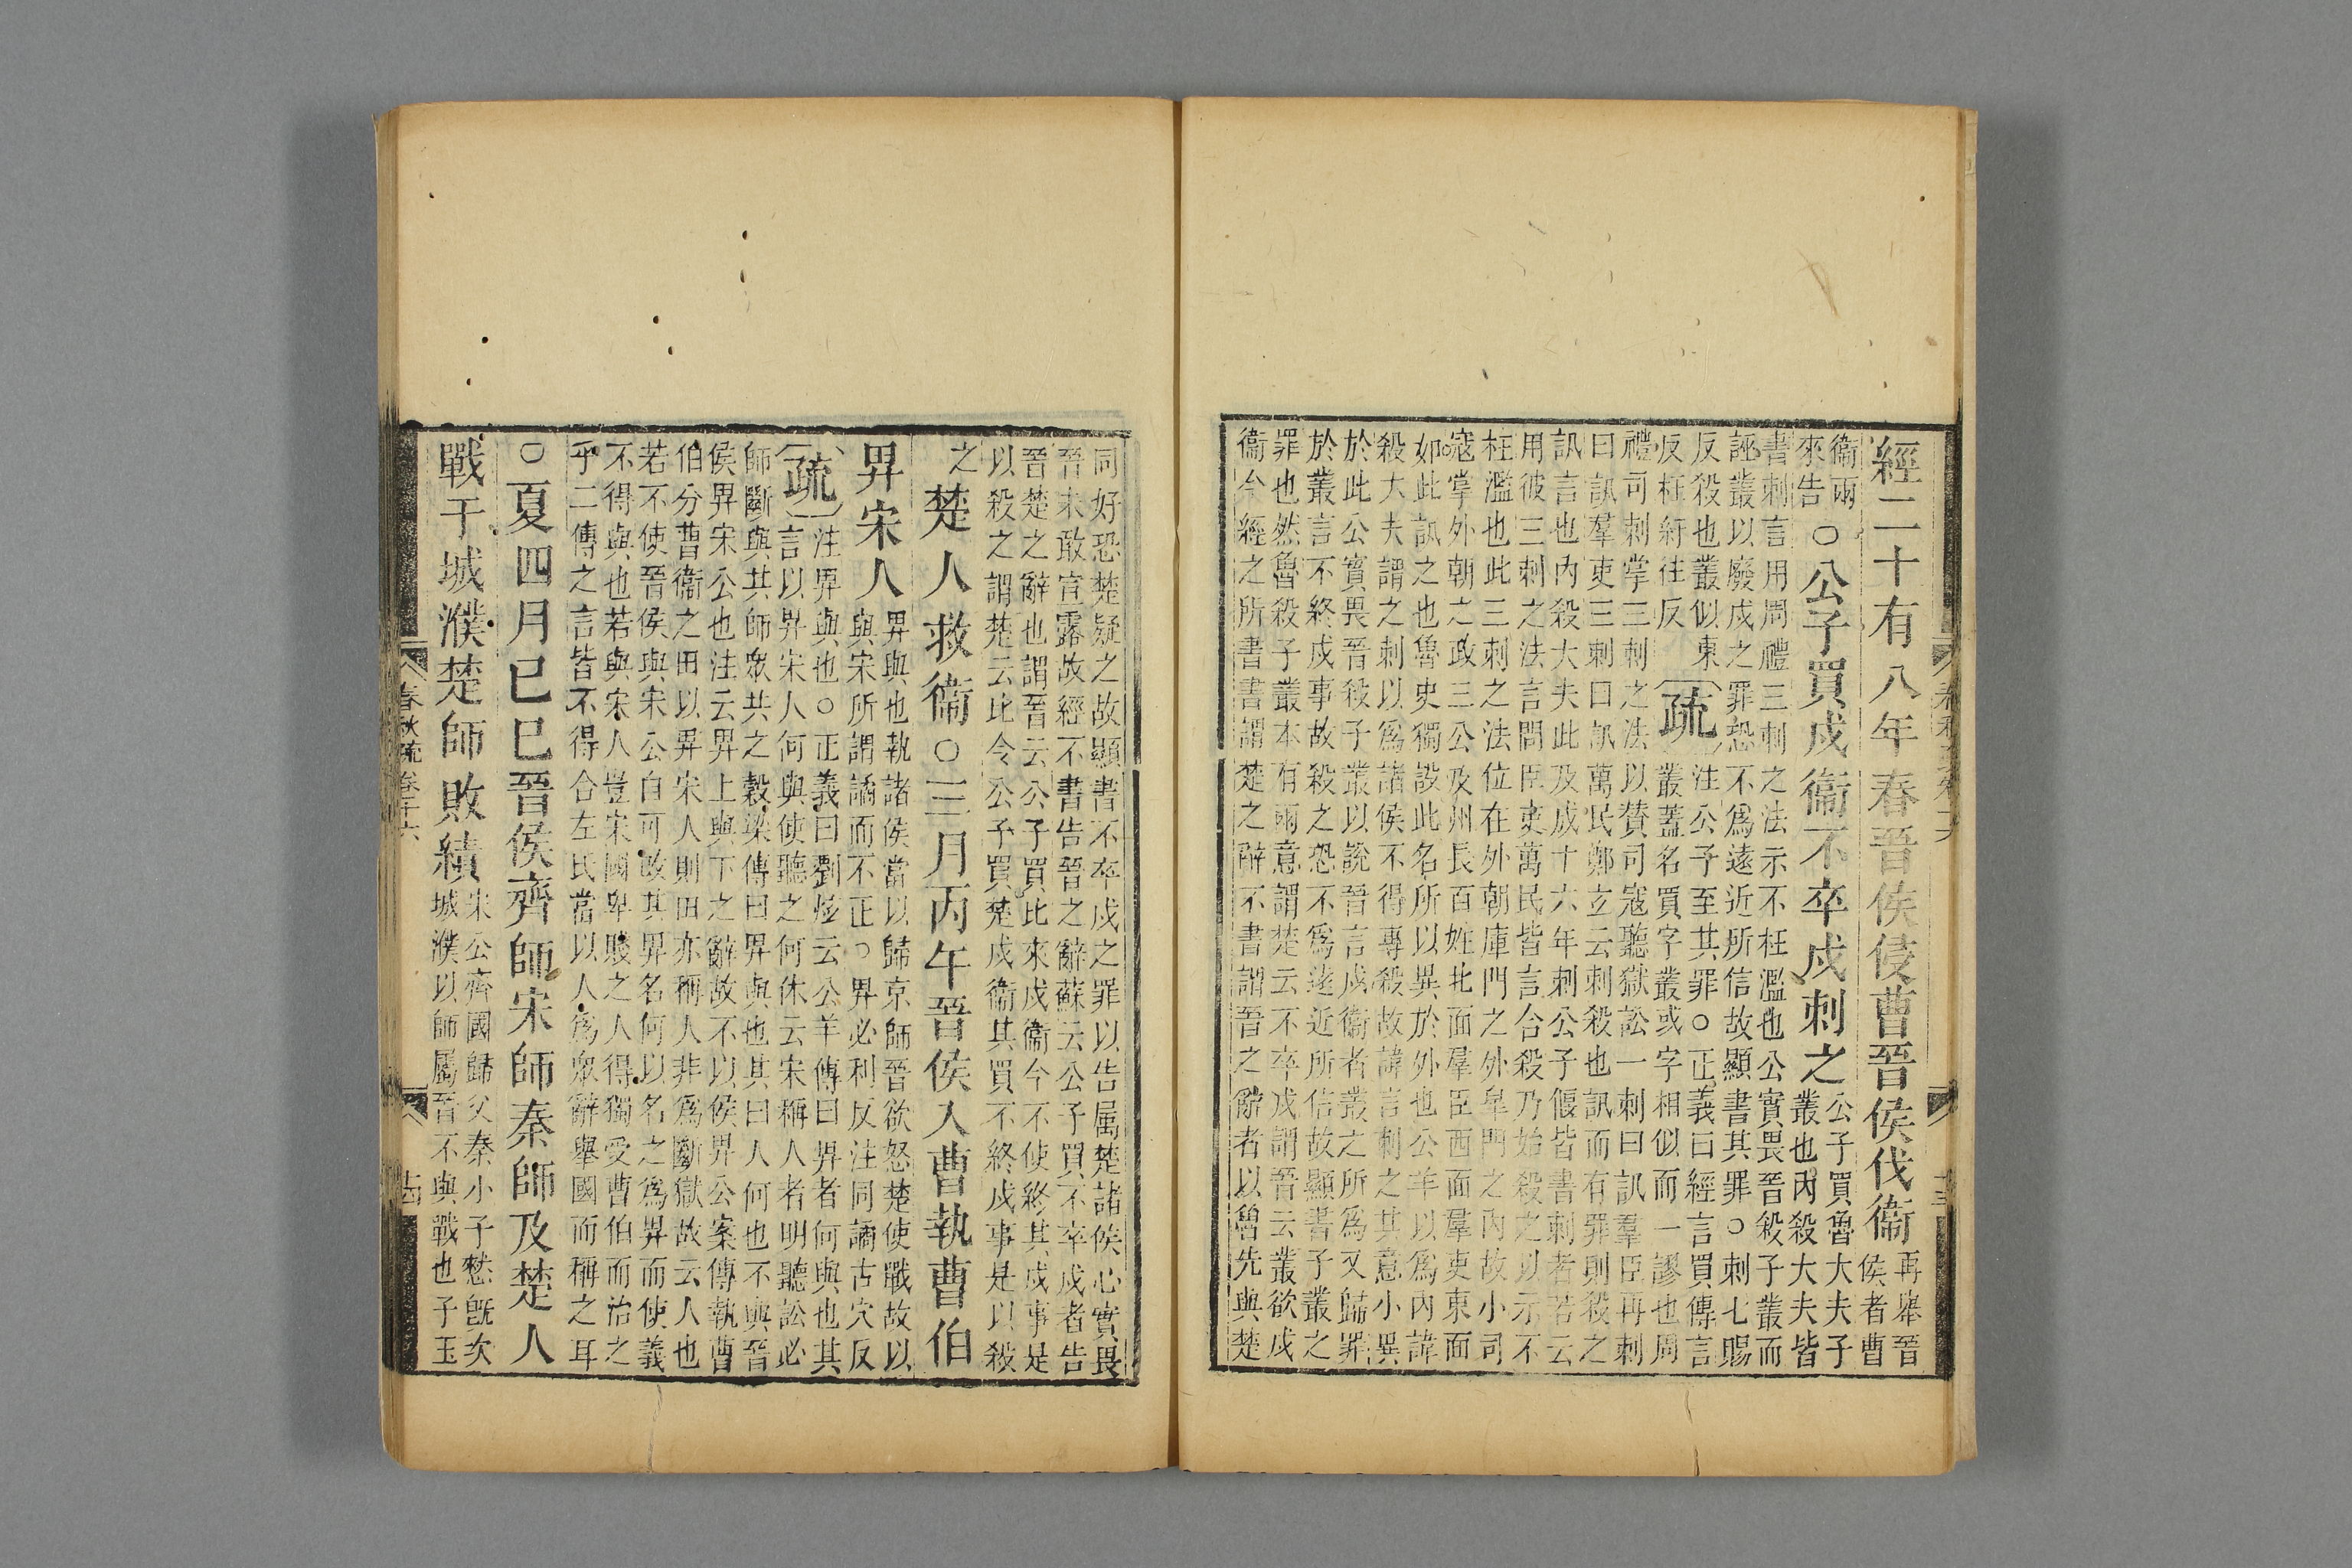 經二十有八年春晉侯侵曹晉侯伐衞再舉晉
侯者曹
衞兩
來告○公子買戍衞不卒戍刺之公子買魯大夫子
叢也內殺大夫皆
書刺言用周禮三刺之法示不枉濫也公實畏晉殺子叢而
誣叢以廢戍之罪恐不爲遠近所信故顯書其罪○刺七賜
反殺也叢似東
反枉紆往反
疏
注公子至其罪○正義曰經言買傳言
叢蓋名買字叢或字相似而一謬也周
禮司刺掌三刺之法以贊司寇聽獄訟一刺曰訊羣臣再刺
曰訊羣吏三刺曰訊萬民鄭玄云刺殺也訊而有罪則殺之
訊言也內殺大夫此及成十六年刺公子偃皆書刺者若云
用彼三刺之法言問臣吏萬民皆言合殺乃始殺之以示不
枉濫也此三刺之法位在外朝庫門之外皐門之內故小司
寇掌外朝之政三公及州長百姓北面羣臣西面羣吏東面
如此訊之也魯史獨設此名所以異於外也公羊以爲內諱
殺大夫謂之刺以爲諸侯不得專殺故諱言刺之其意小異
於此公實畏晉殺子叢以說晉言戍衞者叢之所爲又歸罪
於叢言不終戍事故殺之恐不爲遠近所信故顯書子叢之
罪也然魯殺子叢本有兩意謂楚云不卒戍謂晉云叢欲戍
衞今經之所書書謂楚之辭不書謂晉之辭者以魯先與楚
同好恐楚疑之故顯書不卒戍之罪以告屬楚諸侯心實畏
晉未敢宣露故經不書告晉之辭蘇云公子買不卒戍者告
晉楚之辭也謂晉云公子買比來戍衞今不使終其戍事是
以殺之謂楚云比令公子買楚戍衞其買不終戍事是以殺
之
楚人救衞○三月丙午晉侯入曹執曹伯
畀宋人畀與也執諸侯當以歸京師晉欲怒楚使戰故以
與宋所謂譎而不正○畀必利反注同譎古穴反
疏
注畀與也○正義曰劉炫云公羊傳曰畀者何與也其
言以畀宋人何與使聽之何休云宋稱人者明聽訟必
師斷與其師眾共之穀梁傳曰畀與也其曰人何也不與晉
侯畀宋公也注云畀上與下之辭故不以侯畀公案傳執曹
伯分曹衞之田以畀宋人則田亦稱人非爲斷獄故云人也
若不使晉侯與宋公自可改其畀名何以名之爲畀而使義
不得與也若與宋人豈宋國卑賤之人得獨受曹伯而治之
乎二傳之言皆不得合左氏當以人爲眾辭舉國而稱之耳
○夏四月已巳晉侯齊師宋師秦師及楚人
戰于城濮楚師敗績宋公齊國歸父秦小子憖旣次
城濮以師屬晉不與戰也子玉
春秋疏卷十六
十四